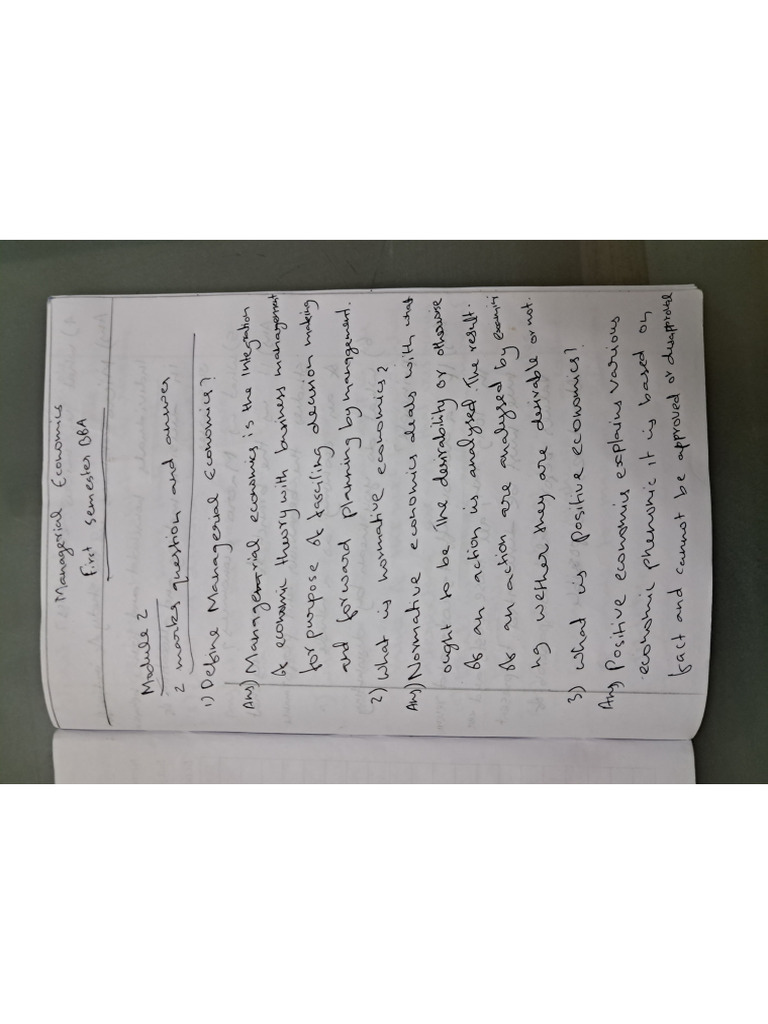 Managerial Economics
First semester BBA
Module 2
2 marks question and answer
1) Define Managerial Economics?
Ans) Managerial economics is the Integration
of economic theory with business management
for purpose of fasciling decision making
and forward planning by management.
2) What is normative economics?
Ans) Normative economics deals with what
ought to be The desirability or otherwise
of an action is analysed The result.
of an action are analysed by examini
ng wether they are derirable or not.
3) What is positive economics?
Ans) Positive economics explains various
economic phenomic it is based on
fact and cannot be approved or disapproved